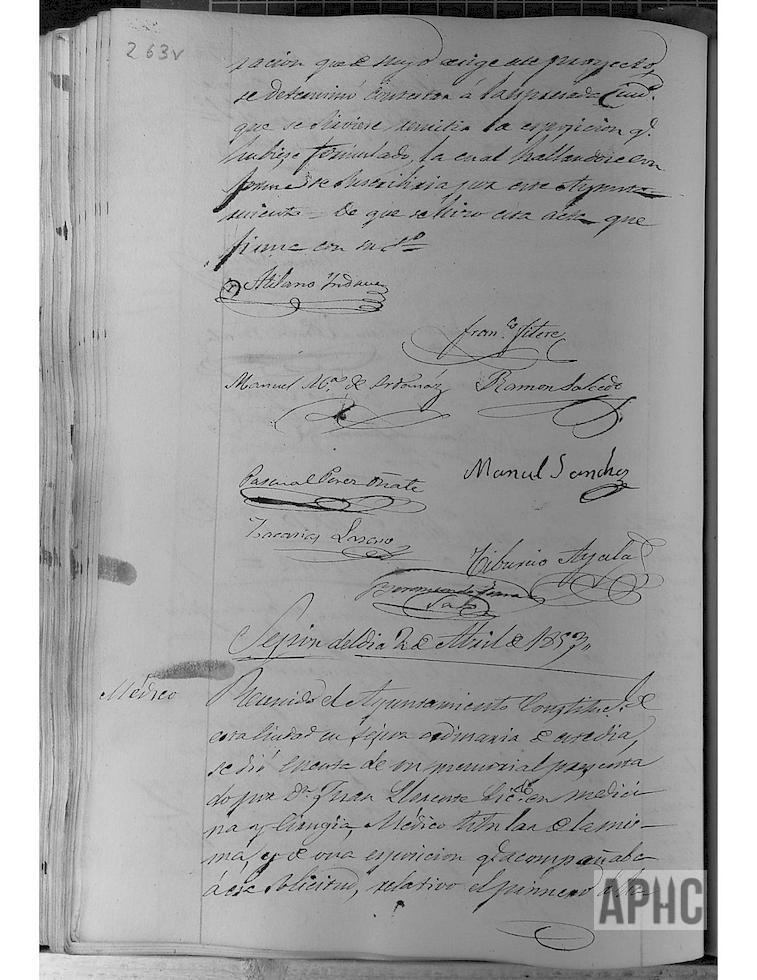 263v
racion que de suyo exige ese proyecto,
se determinó contestar á la espresada Ciud.
que se sirviese remitir la esposicion q.
hubiese formulado, la cual hallandose con
forme se suscribiria por este Ayunta
miento = De que se hizo esta acta que
firma con su Sª
Atilano Yndave
Fran.co Jitere
Manuel M.ª de Ordoñaz
Ramon Salcedo
Pascual Perez Oñate
Manuel Sanchez
Zacarias Lasaro
Tiburcio Ayala
Sesion del dia 2 de Abril de 1853,,
Médico
Reunido el Ayuntamiento Constitu.l de
esta Ciudad en sesion ordinaria de este dia,
se dió cuenta de un memorial presenta
do por Dn. Juan Llorente Lic.do en medici
na y Cirugia, Médico titular de la mis-
ma, y de una esposicion q. acompañaba
á esta solicitud, relativo el primero á
APHC